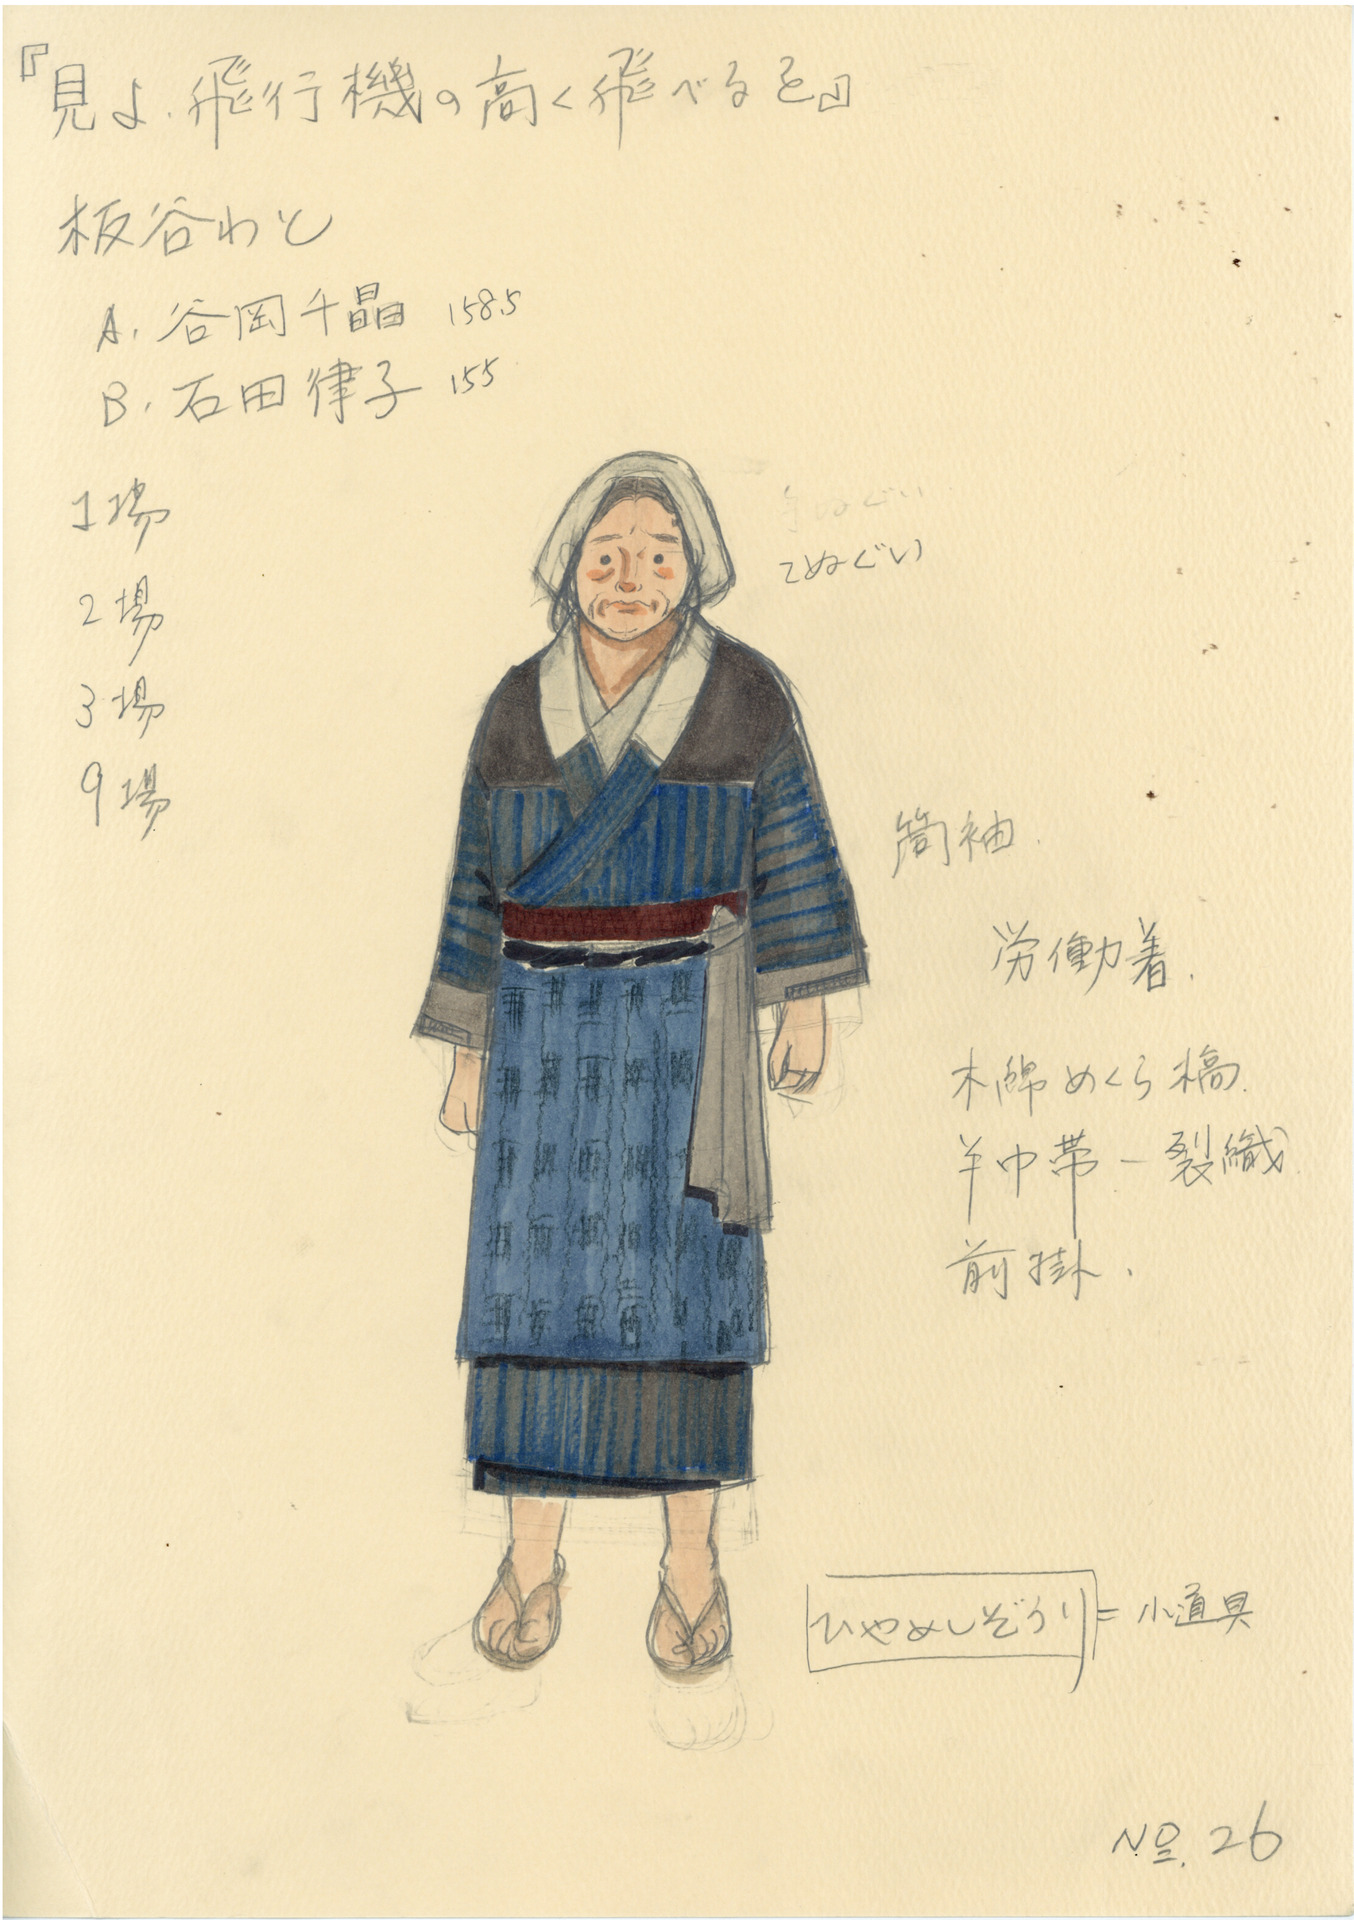 『見よ、飛行機の高く飛べるを』
板谷わと
A. 谷岡千晶 158.5
B. 石田律子 155
1場
2場
3場
9場
手ぬぐい
てぬぐい
筒袖.
労働着.
木綿めくら縞.
半巾帯ー裂織
前掛.
ひやめしぞうり = 小道具
No. 26